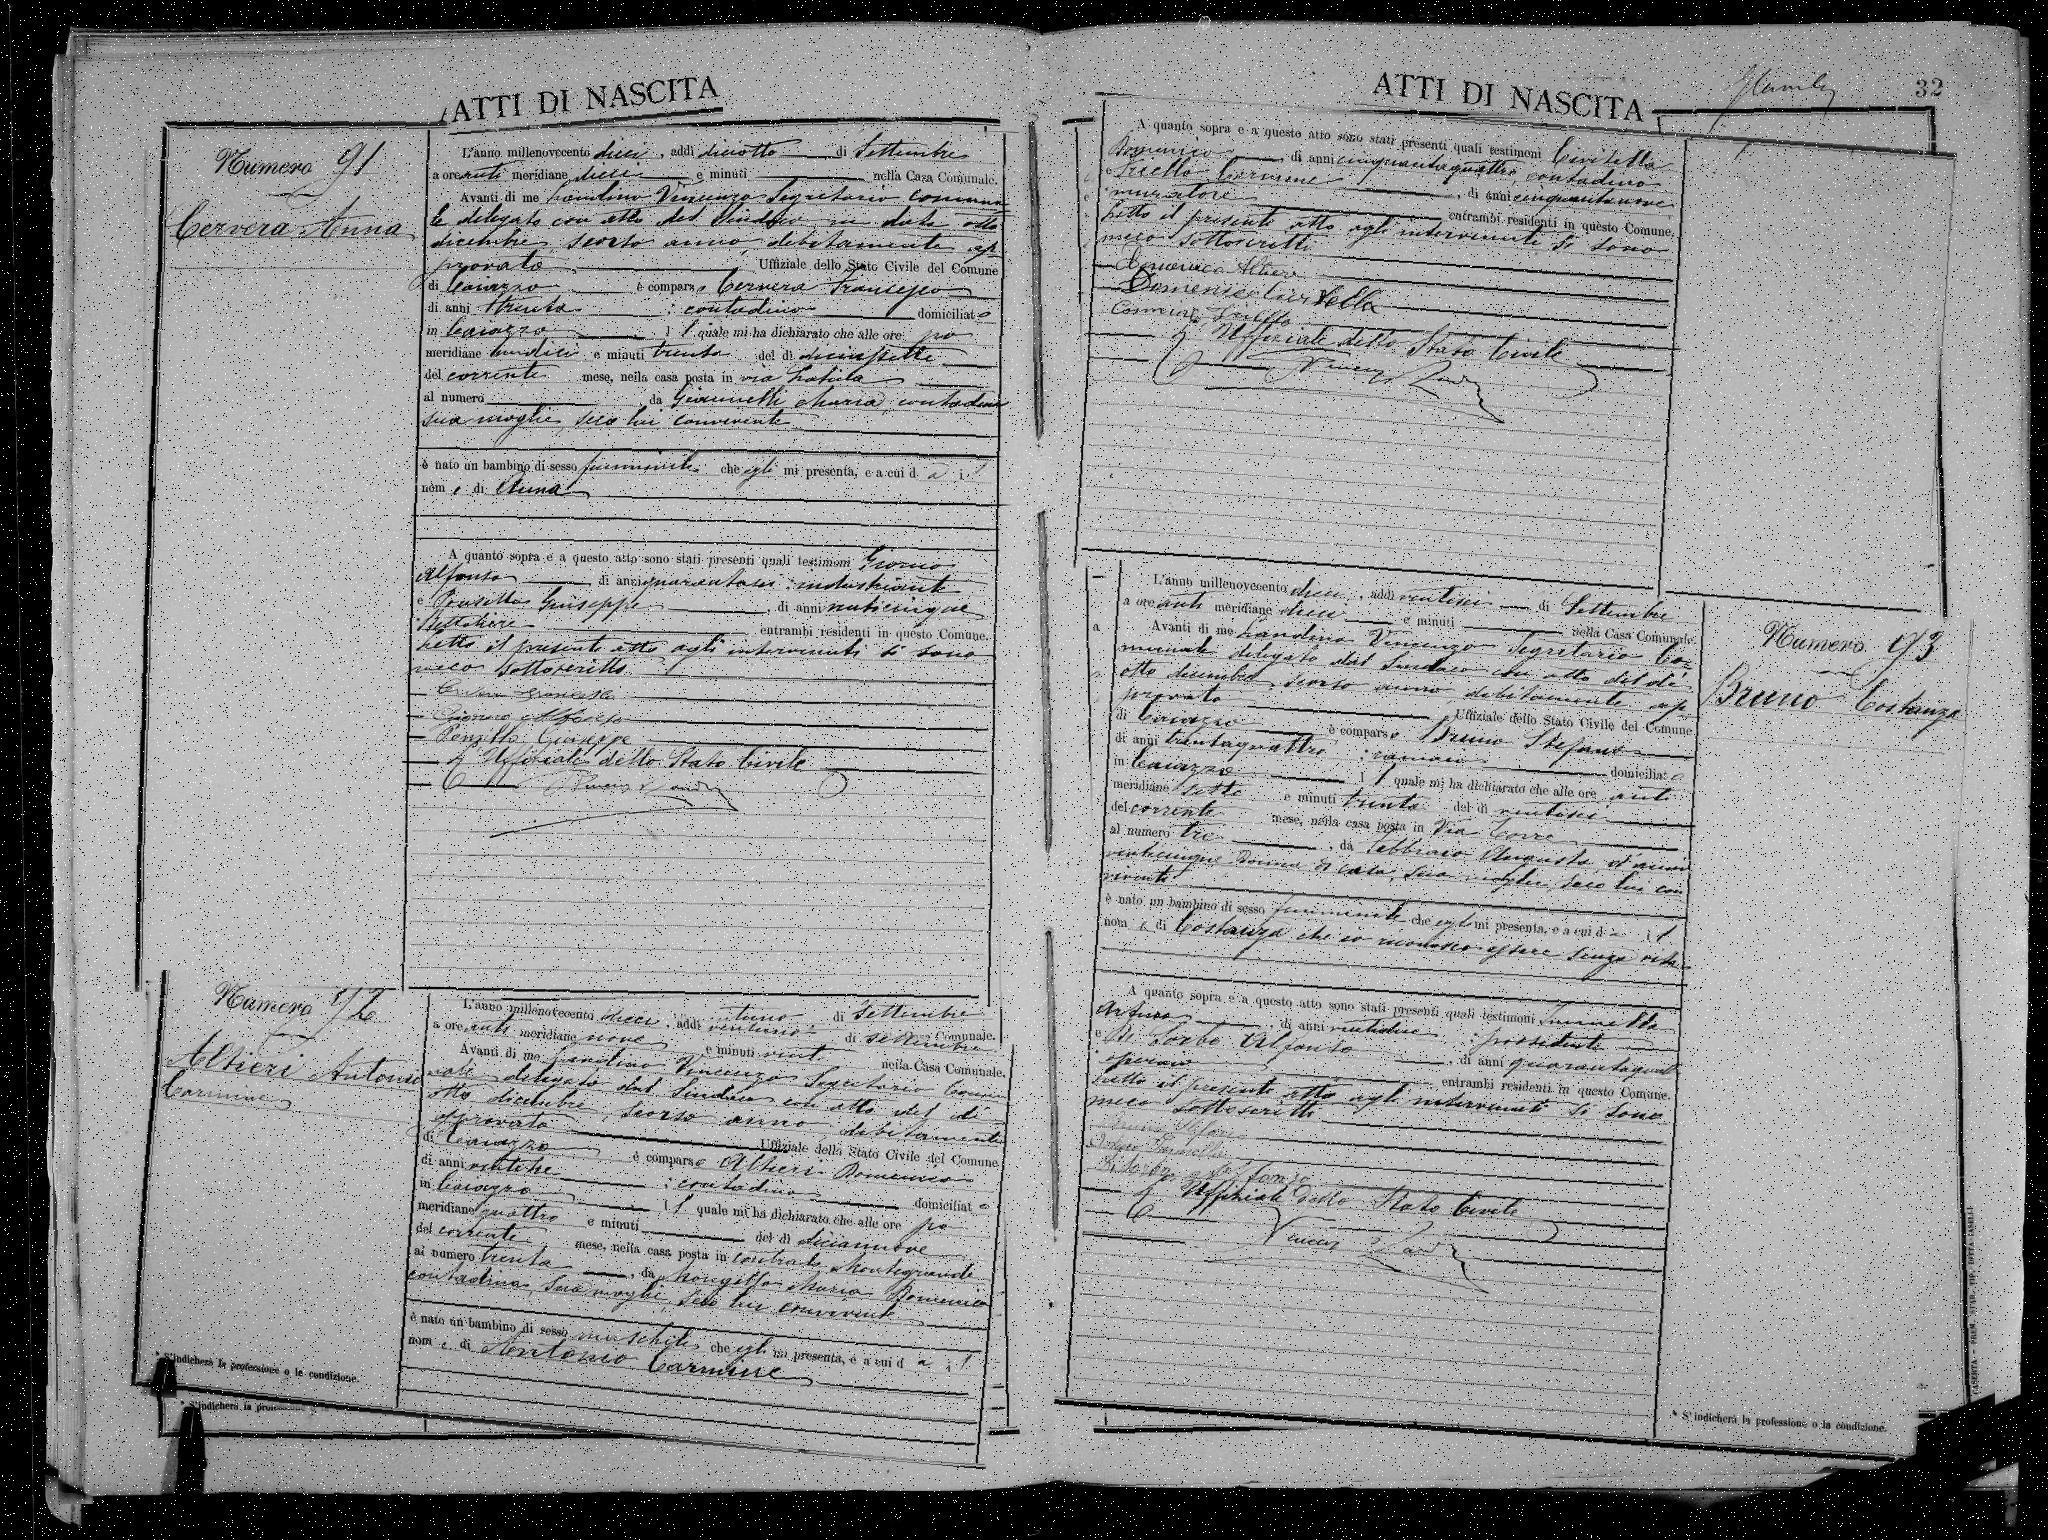 ATTI DI NASCITA
Numero 91
Cervera Anna
L'anno millenovecento dieci, addì diciotto di Settembre
a ore anti meridiane dieci e minuti nella Casa Comunale.
Avanti di me Landino Vincenzo Segretario comuna
le delegato con atto del Sindaco in data otto
dicembre scorso anno, debitamente ap
provato Uffiziale dello Stato Civile del Comune
di Caiazzo è comparso Cervera Francesco
di anni trenta : contadino domiciliato
in Caiazzo il quale mi ha dichiarato che alle ore po
meridiane undici e minuti trenta del dì diciassette
del corrente mese, nella casa posta in via
al numero da Giannelli Maria, contadina
sua moglie, seco lui convivente
è nato un bambino di sesso femminile che egli mi presenta, e a cui dà il
nome di Anna
A quanto sopra e a questo atto sono stati presenti quali testimoni
Alfonso di anni quarantasei industriante
e Ponsillo Giuseppe, di anni venticinque
bottaio entrambi residenti in questo Comune.
Letto il presente atto agli intervenuti si sono
meco sottoscritti
Cervera Francesco
Alfonso
Ponsillo Giuseppe
L'Uffiziale dello Stato Civile
Vincenzo Landino
Numero 92
Altieri Antonio
Carmine
L'anno millenovecento dieci, addì ventuno di Settembre
a ore anti meridiane nove e minuti venti nella Casa Comunale.
Avanti di me Landino Vincenzo Segretario Comu
nale delegato dal Sindaco con atto del dì
otto dicembre scorso anno debitamente
approvato Uffiziale dello Stato Civile del Comune
di Caiazzo è comparso Altieri Domenico
di anni ventitre : contadino domiciliato
in Caiazzo il quale mi ha dichiarato che alle ore po
meridiane quattro e minuti del dì diciannove
del corrente mese, nella casa posta in contrada Montegrande
al numero trenta, da Mongillo Maria Domenica
contadina, sua moglie, seco lui convivente
è nato un bambino di sesso maschile che egli mi presenta, e a cui dà il
nome di Antonio Carmine
* S'indicherà la professione o la condizione.
* S'indicherà la
ATTI DI NASCITA
32
A quanto sopra e a questo atto sono stati presenti quali testimoni Civitella
Domenico di anni cinquantaquattro, contadino
e Carmine, di anni cinquantanove
muratore entrambi residenti in questo Comune.
Letto il presente atto agli intervenuti si sono
meco sottoscritti
Domenico Altieri
Domenico Civitella
Carmine
L'Uffiziale dello Stato Civile
Vincenzo Landino
Numero 93
Bruno Costanza
L'anno millenovecento dieci, addì ventisei di Settembre
a ore anti meridiane dieci e minuti nella Casa Comunale.
Avanti di me Landino Vincenzo Segretario Co=
munale delegato dal Sindaco con atto del dì
otto dicembre scorso anno, debitamente ap
provato Uffiziale dello Stato Civile del Comune
di Caiazzo è comparso Bruno Stefano
di anni trentaquattro : domiciliato
in Caiazzo il quale mi ha dichiarato che alle ore anti
meridiane sette e minuti trenta del dì ventisei
del corrente mese, nella casa posta in Via Torre
al numero tre, da Febbraio Augusta, d'anni
venticinque donna di casa, sua moglie, seco lui con
vivente
è nato un bambino di sesso femminile che egli mi presenta, e a cui dà il
nome di Costanza che io riconosco essere senza vita
A quanto sopra e a questo atto sono stati presenti quali testimoni
Arturo, di anni ventidue : possidente
e Di Sorbo Alfonso, di anni quarantaquattro
operaio entrambi residenti in questo Comune.
Letto il presente atto agli intervenuti si sono
meco sottoscritti
Bruno Stefano
Di Sorbo Alfonso
L'Uffiziale dello Stato Civile
Vincenzo Landino
* S'indicherà la professione o la condizione.